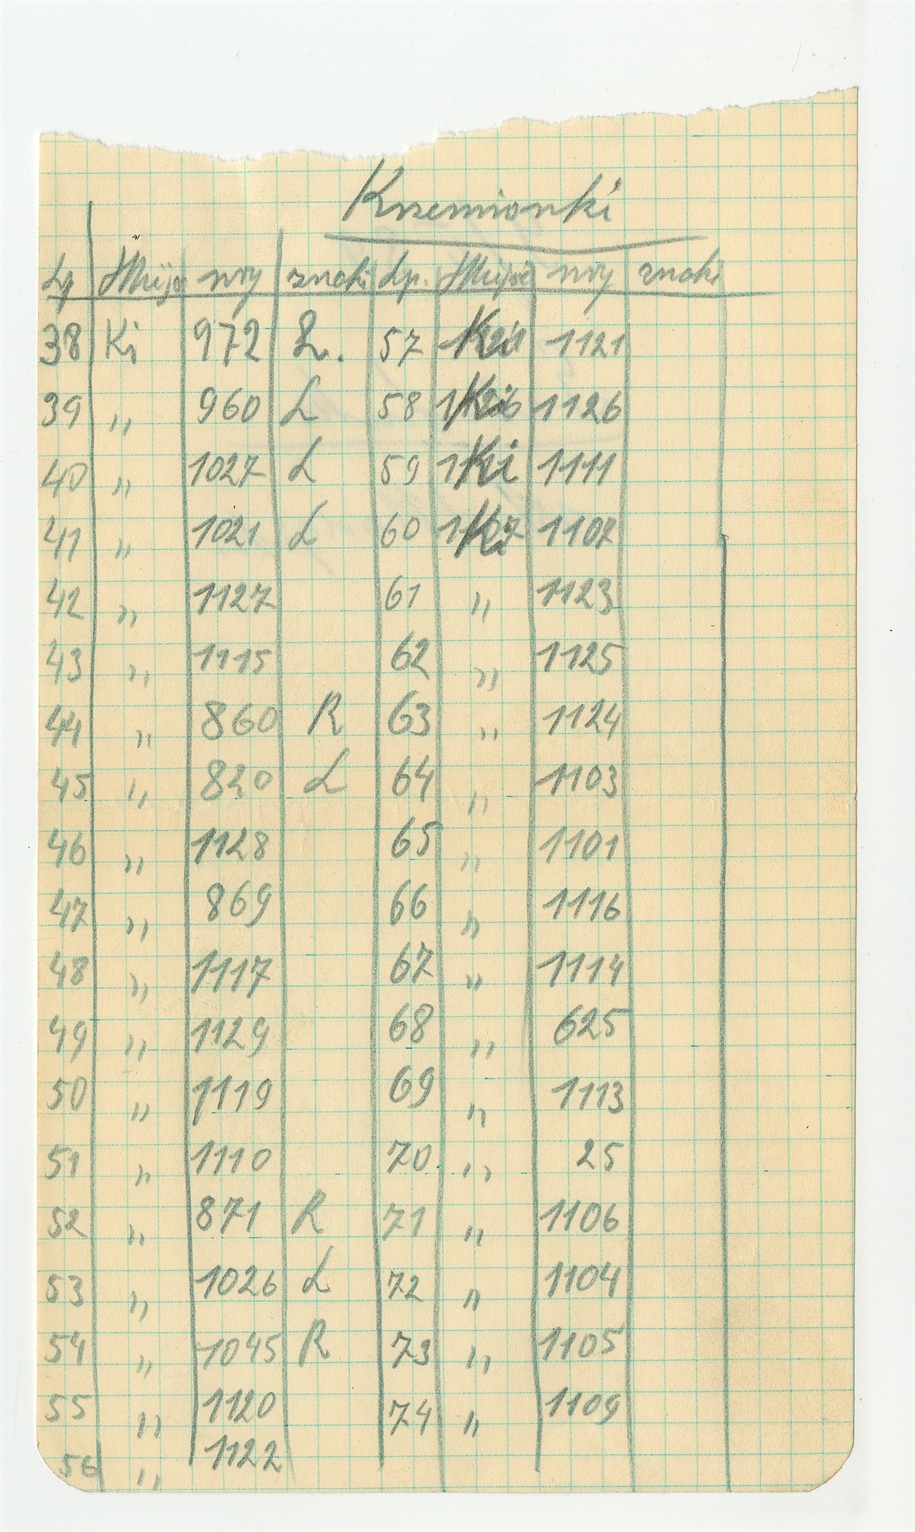 Krzemionki
Lp Miejsc nry znaki Lp. Miejsc nry znaki
38 Ki 972 L. 57 Ki 1121
39 " 960 L 58 Ki 1126
40 " 1027 L 59 Ki 1111
41 " 1021 L 60 Ki 1107
42 " 1127 61 " 1123
43 " 1115 62 " 1125
44 " 860 R 63 " 1124
45 " 820 L 64 " 1103
46 " 1128 65 " 1101
47 " 869 66 " 1116
48 " 1117 67 " 1114
49 " 1129 68 " 625
50 " 1119 69 " 1113
51 " 1110 70 " 25
52 " 871 R 71 " 1106
53 " 1026 L 72 " 1104
54 " 1045 R 73 " 1105
55 " 1120 74 " 1109
56 " 1122